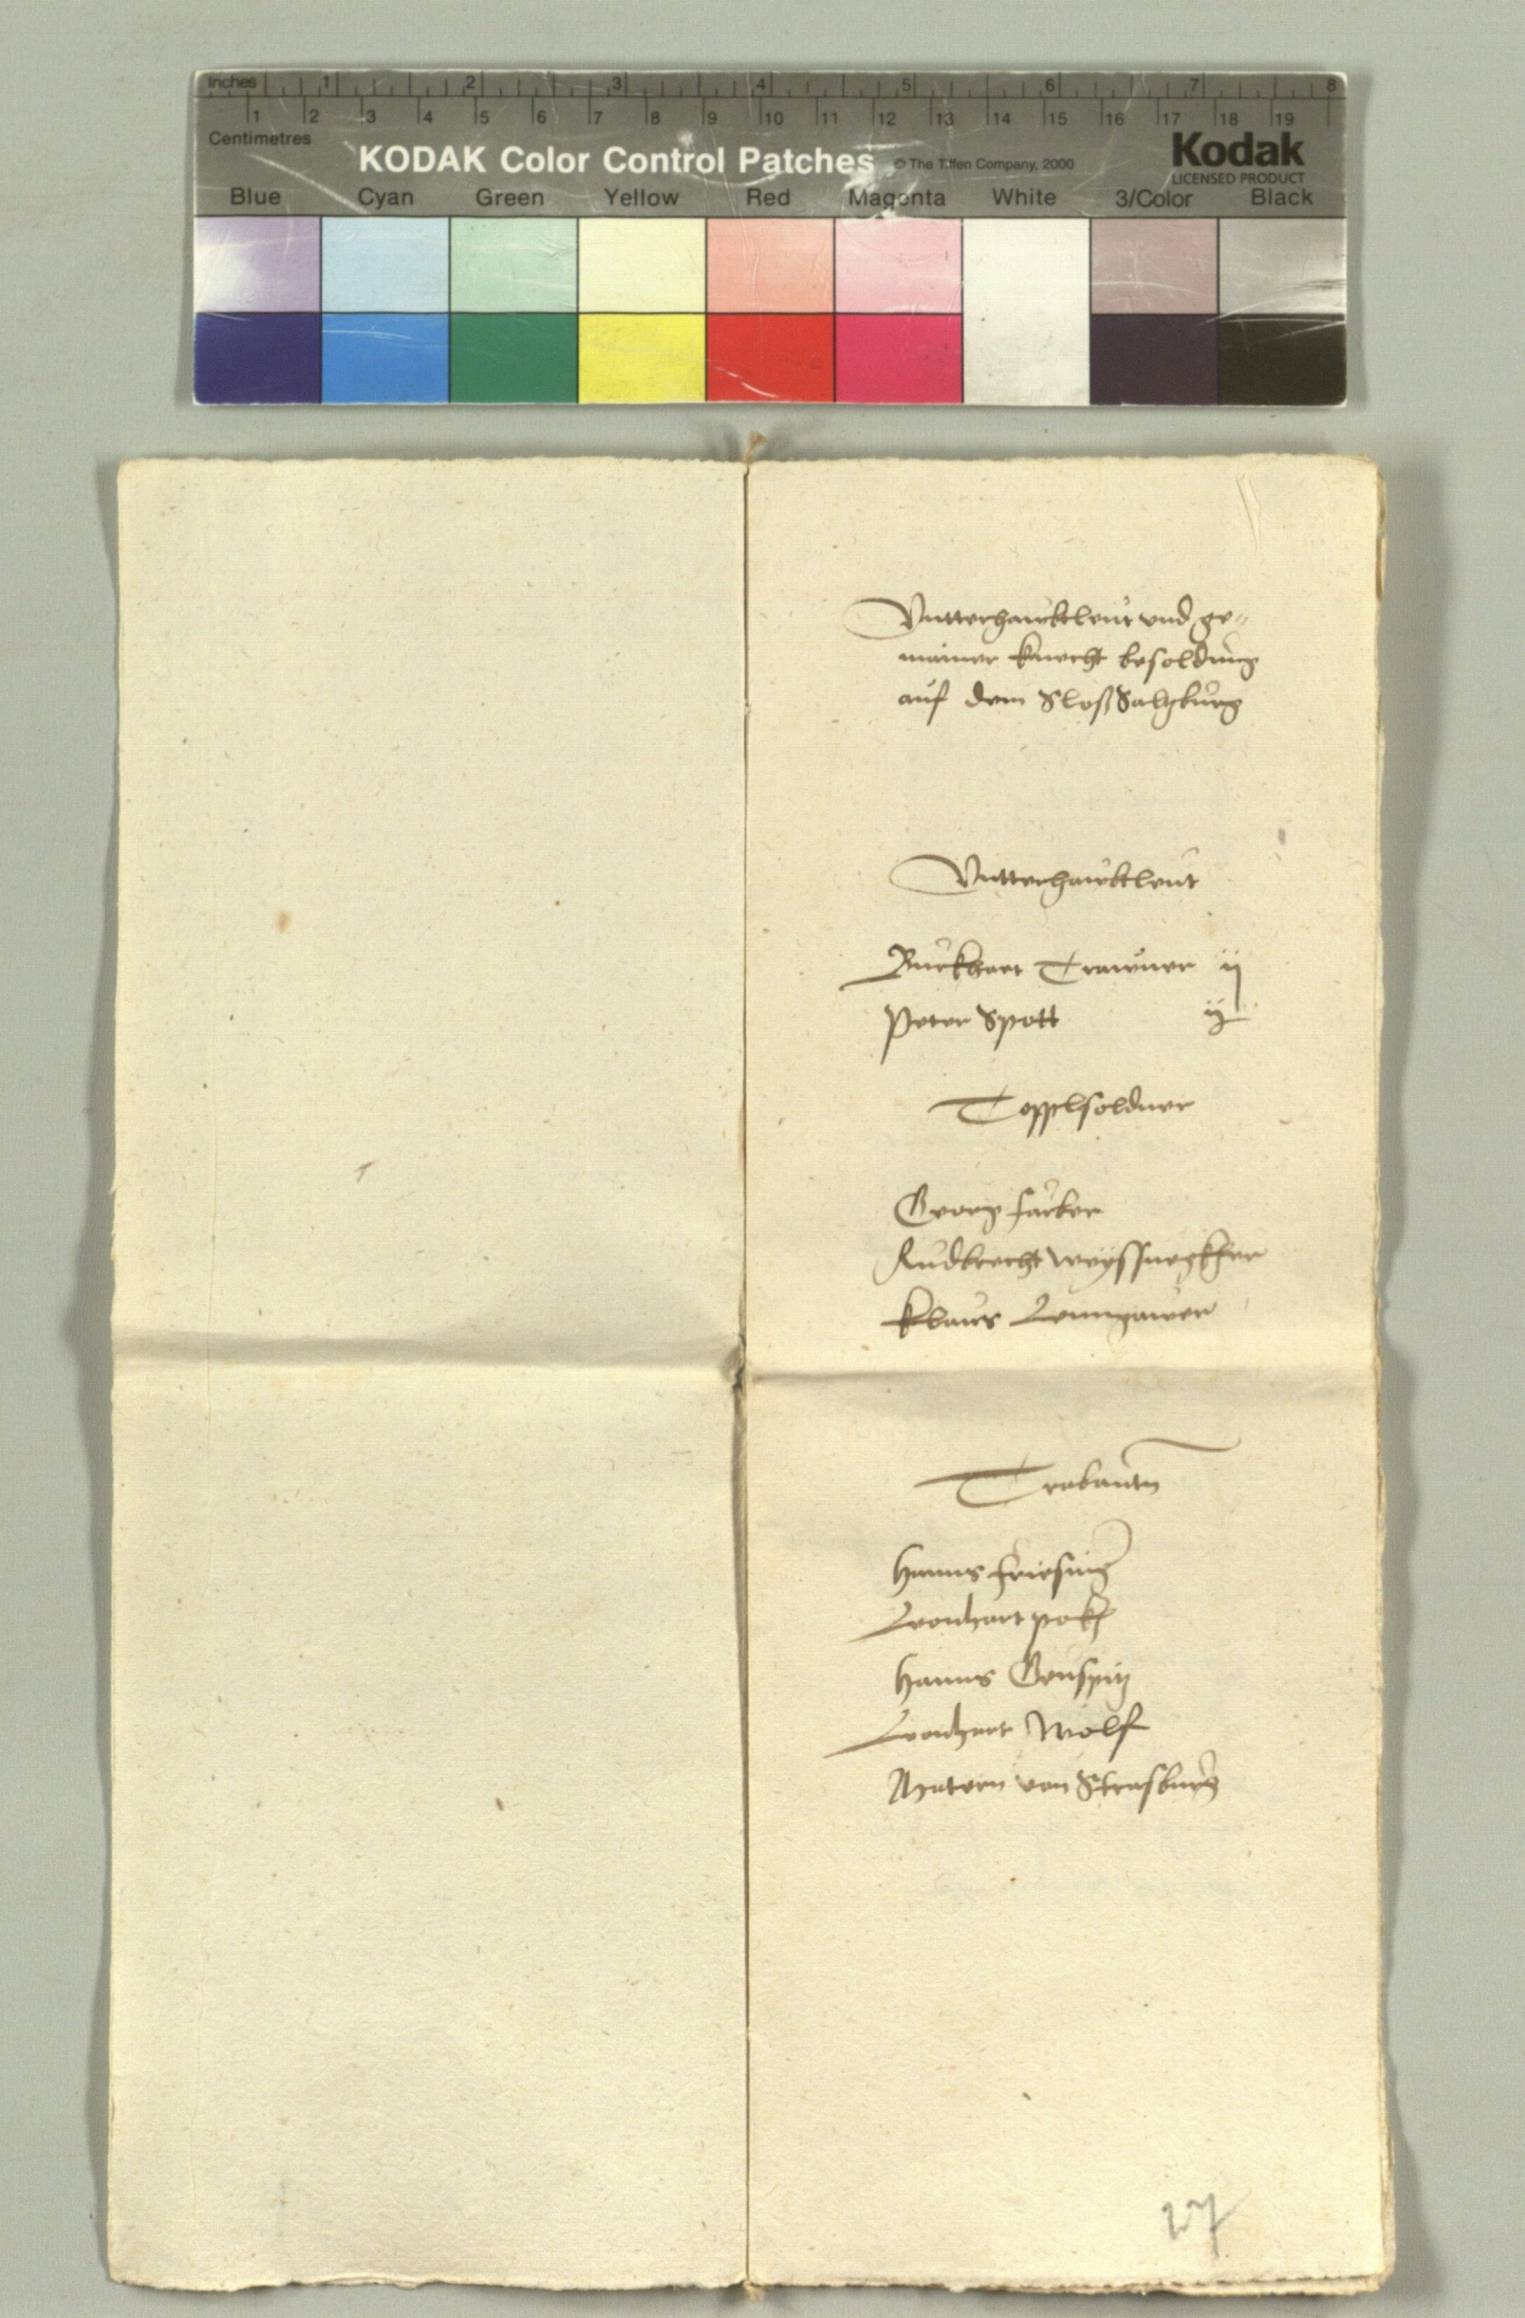 Inches 1 2 3 4 5 6 7 8
1 2 3 4 5 6 7 8 9 10 11 12 13 14 15 16 17 18 19
Centimetres
KODAK Color Control Patches © The Tiffen Company, 2000 Kodak
LICENSED PRODUCT
Blue Cyan Green Yellow Red Magenta White 3/Color Black
Vntterhaubtleut vnd ge-
mainer knecht besoldung
auf dem Sloß Saltzburg
Vntterhaubtleut
Burkhart Trauner ij
Peter Spott ij
Topplsoldner
Georg farber
Rudbrecht Weyssnegkher
Klaus
Trabantn
Hanns friesing
Leonhart pokh
Hanns Genspitz
Leonhart Wolf
Matern von Strasburg
27